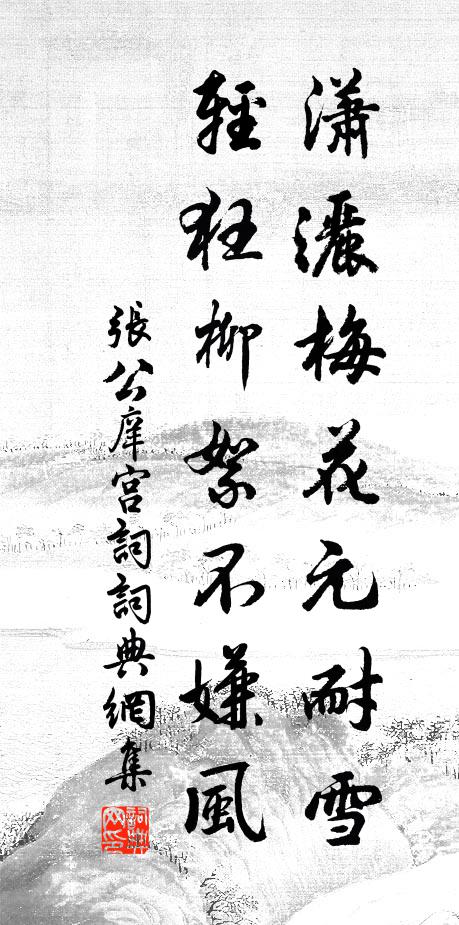 瀟灑梅花元耐雪
輕狂柳絮不嫌風
張公庠宮詞詞典網集